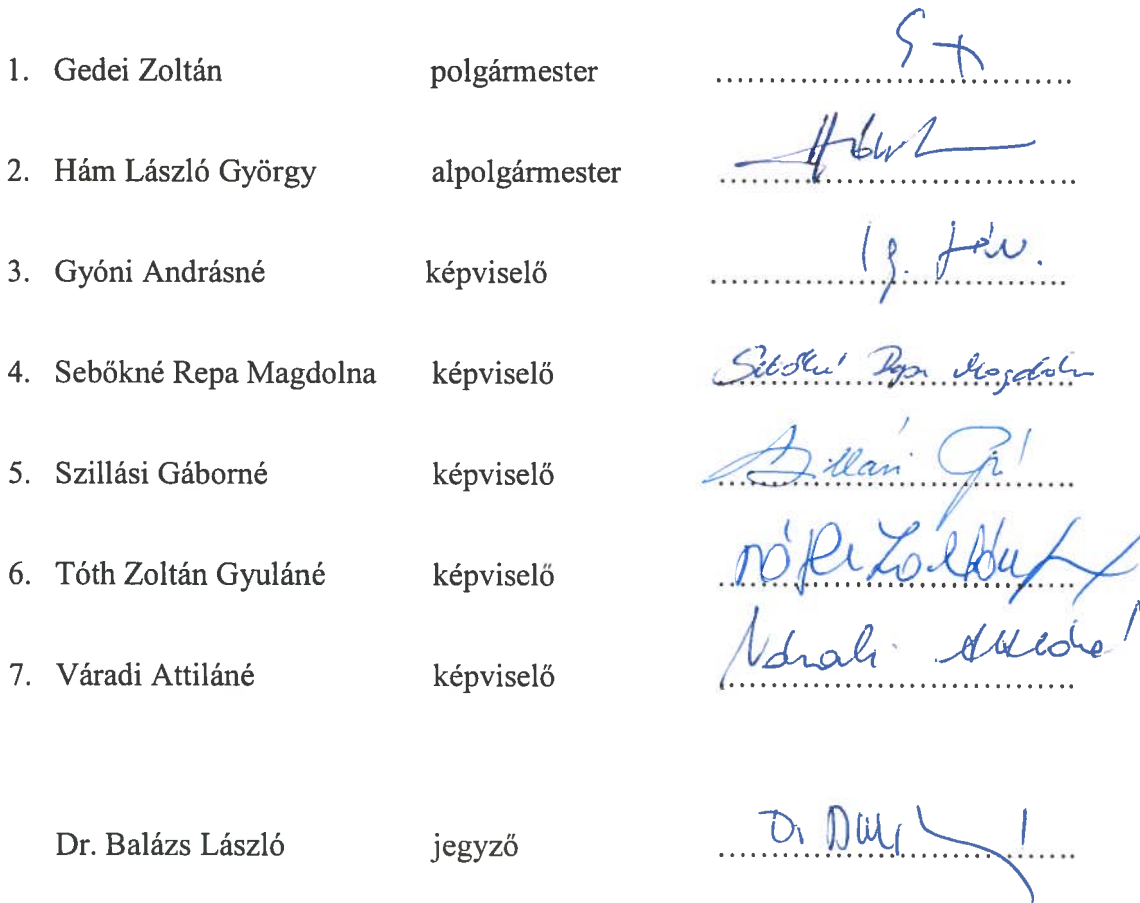 1. Gedei Zoltán polgármester
2. Hám László György alpolgármester
3. Gyóni Andrásné képviselő
4. Sebőkné Repa Magdolna képviselő Sebőkné Repa Magdolna
5. Szillási Gáborné képviselő
6. Tóth Zoltán Gyuláné képviselő
7. Váradi Attiláné képviselő Váradi Attiláné
Dr. Balázs László jegyző